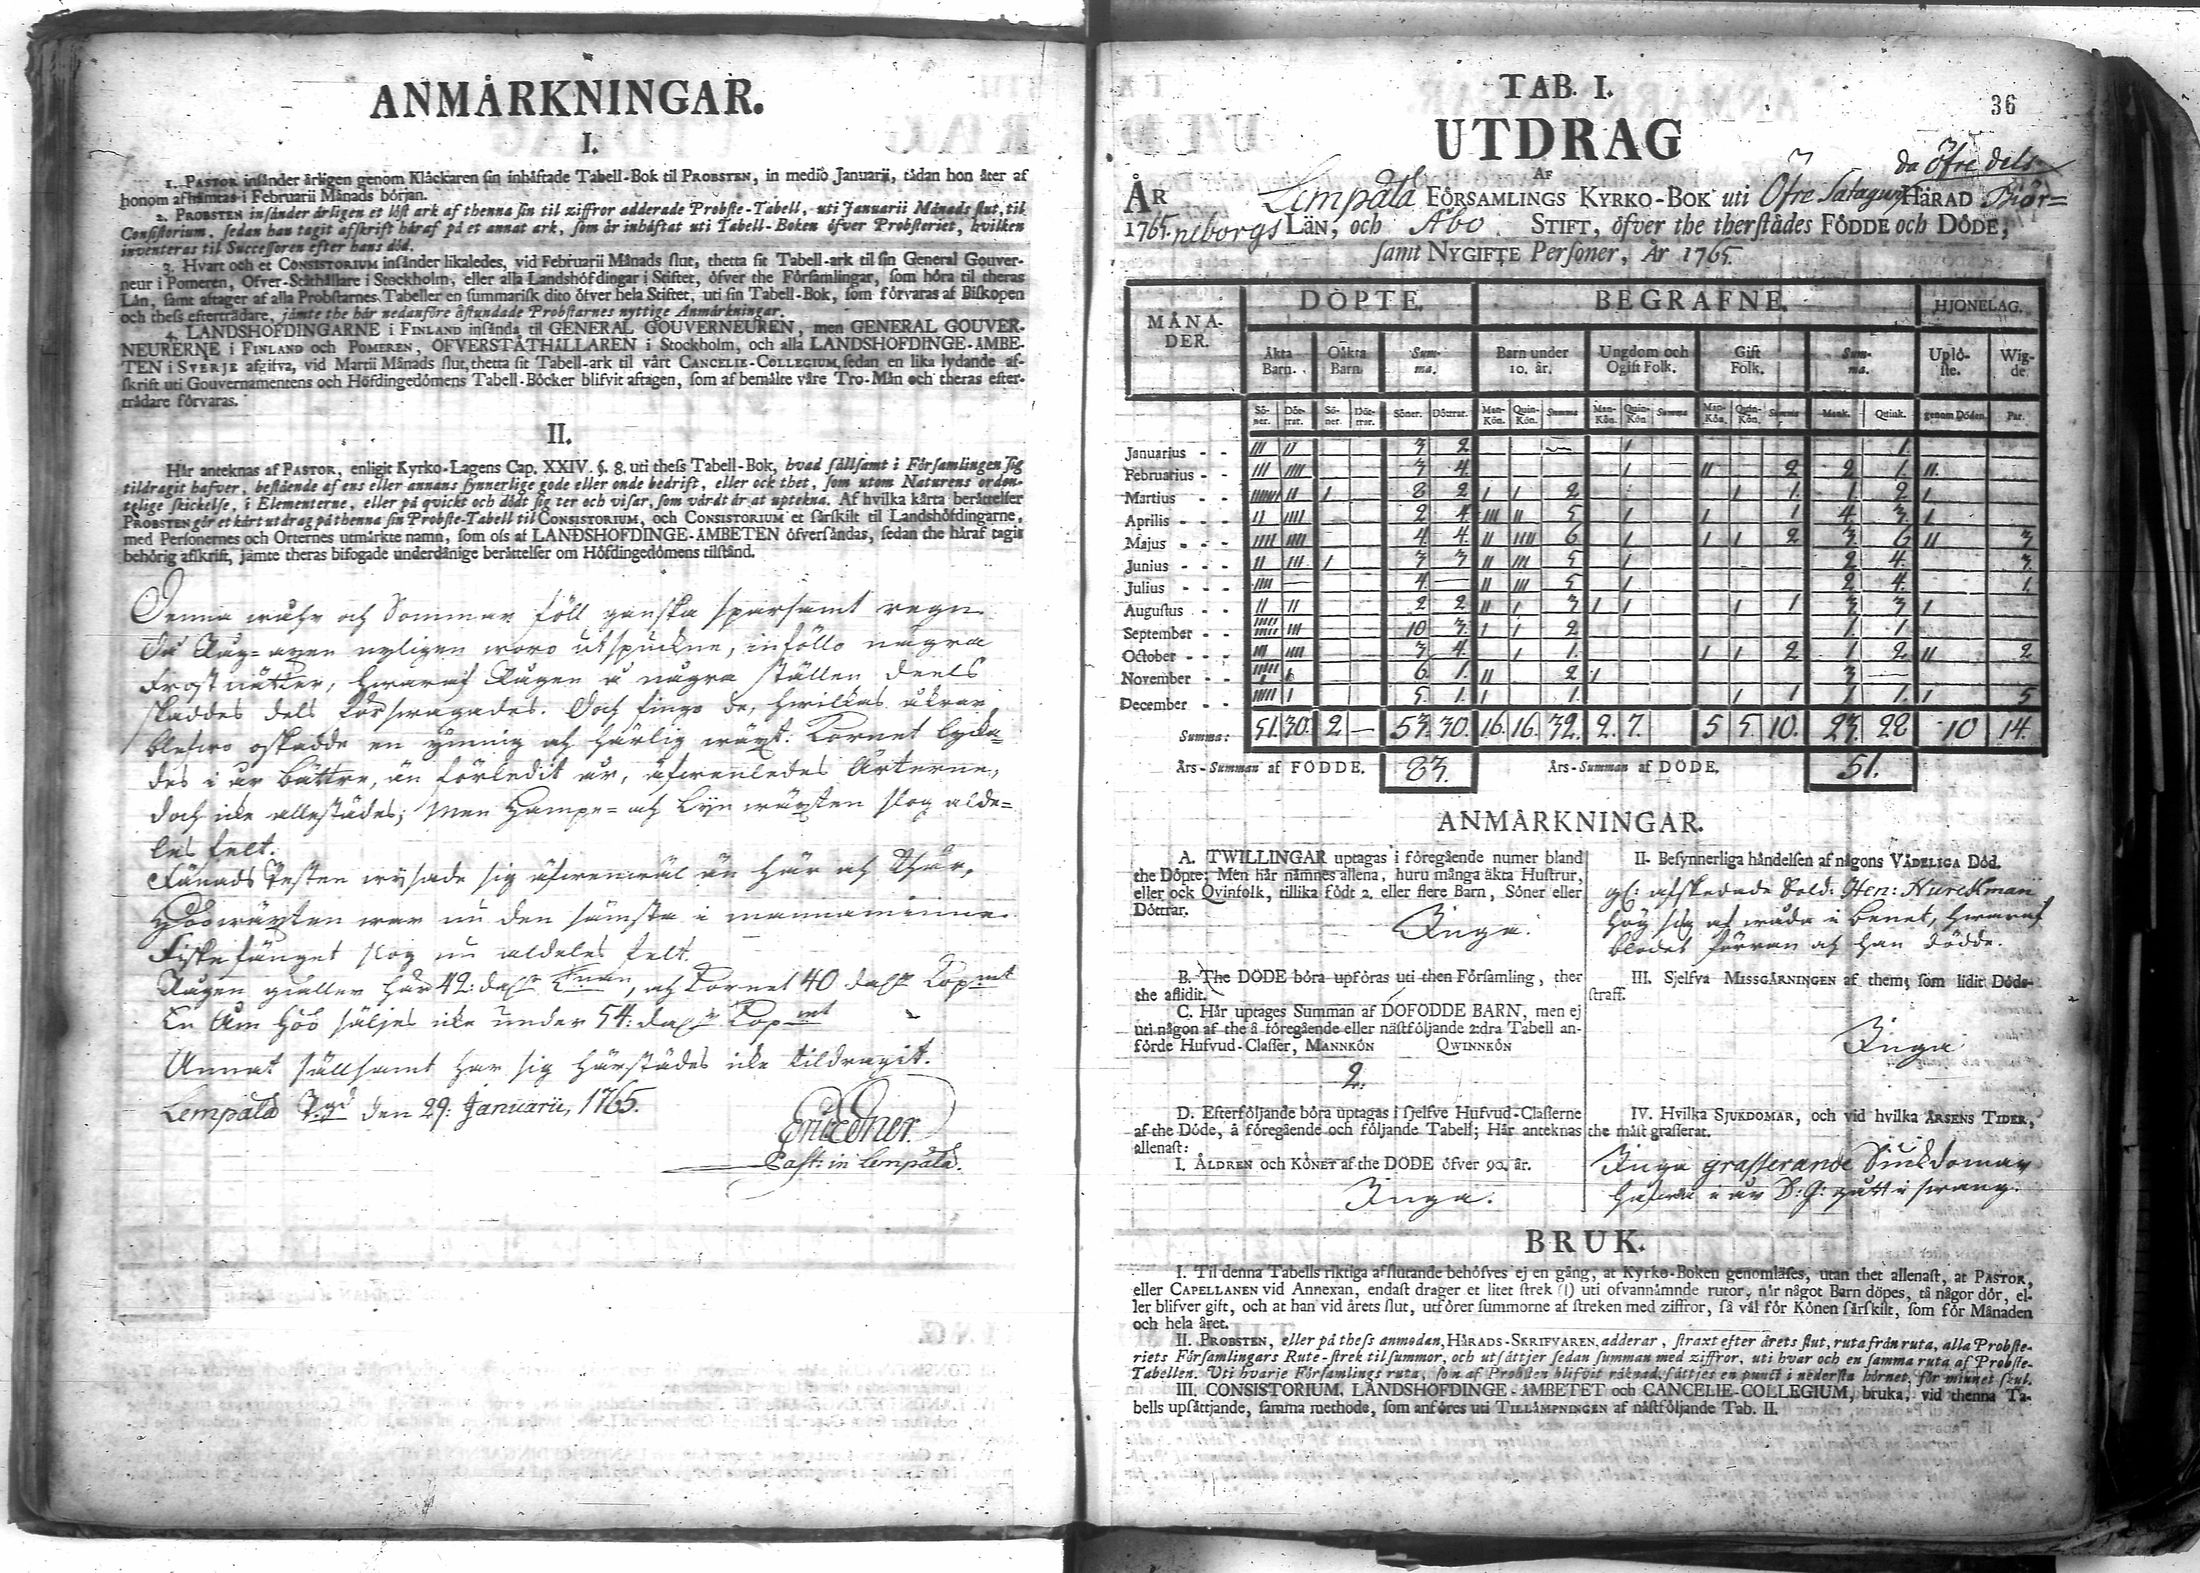 ANMÄRKNINGAR.
I.
1. PASTOR insänder årligen genom Klåckaren sin inhäftade Tabell-Bok til PROBSTEN, in medio Januarii, tädan hon åter af
honom afhämtas i Februarii Månads början.
2. PROBSTEN insänder årligen et löst ark af thenna sin til ziffror adderade Probste-Tabell, uti Januarii Månads slut, til
Consistorium, sedan han tagit afskrift häraf på et annat ark, som är inhäftat uti Tabell-Boken öfver Probsteriet, hvilken
inventeras til Successoren efter hans död.
3. Hvart och et CONSISTORIUM insänder likaledes, vid Februarii Månads slut, thetta sit Tabell-ark til sin General Gouver-
neur i Pomeren, Öfver-Ståthållare i Stockholm, eller alla Landshöfdingar i Stiftet, öfver the Församlingar, som höra til theras
Län, samt aftager af alla Probstarnes Tabeller en summarisk dito öfver hela Stiftet, uti sin Tabell-Bok, som förvaras af Biskopen
och thess efterträdare, jämte the här nedanföre åstundade Probstarnes nyttige Anmärkningar.
4. LANDSHÖFDINGARNE i FINLAND insända til GENERAL GOUVERNEUREN, men GENERAL GOUVER-
NEURERNE i FINLAND och POMEREN, ÖFVERSTÅTHÅLLAREN i Stockholm, och alla LANDSHÖFDINGE-ÄMBE-
TEN i SVERJE afgifva, vid Martii Månads slut, thetta sit Tabell-ark til vårt CANCELIE-COLLEGIUM, sedan en lika lydande af-
skrift uti Gouvernamentens och Höfdingedömens Tabell-Böcker blifvit aftagen, som af bemälte våre Tro-Män och theras efter-
trädare förvaras.
II.
Här anteknas af PASTOR, enligit Kyrko-Lagens Cap. XXIV. §. 8. uti thess Tabell-Bok, hvad sällsamt i Församlingen sig
tildragit hafver, bestående af ens eller annans synnerlige gode eller onde bedrift, eller ock thet, som utom Naturens orden-
telige skickelse, i Elementerne, eller på qvickt och dödt sig ter och visar, som värdt är at uptekna. Af hvilka kårta berättelser
PROBSTEN gör et kårt utdrag på thenna sin Probste-Tabell til CONSISTORIUM, och CONSISTORIUM et särskilt til Landshöfdingarne,
med Personernes och Orternes utmärkte namn, som oss af LANDSHÖFDINGE-ÄMBETEN öfversändas, sedan the häraf tagit
behörig afskrift, jämte theras bifogade underdånige berättelser om Höfdingedömens tilstånd.
Denna wåhr och Sommar föll ganska sparsamt regn.
Då Råg-axen nyligen woro utspruckne, inföllo några
frostnätter, hwaraf Rågen å några ställen deels
skaddes dels förswagades. Doch finge de, hwilkas åkrar
blefwo oskadde en ymnig och härlig wäxt. Kornet lycka-
des i år bättre, än förledit år, äfwenledes Ärterne,
doch icke allestädes; Men Hampe- och Lijn wäxten slog alde-
les felt.
Fänads Pesten wijsade sig äfwenwäl än här och thär.
Höö wäxten war nu den sämsta i mannaminne.
Fiskefänget slog nu aldeles felt.
Rågen gäller här 42: dahlr tunan, och Kornet 40 dahlr Kopmt
En Åm höö säljes icke under 54: dahlr Kopmt
Annat sällsamt har sig härstädes icke tildragit.
Lempälä Pgd den 29: Januarii, 1765.
Past: in Lempälä.
TAB. I.
36
UTDRAG
AF
da öfre dels
ÅR Lempälä FÖRSAMLINGS KYRKO-BOK uti Öfre Satagund HÄRAD Biör-
1765. neborgs LÄN, och Åbo STIFT, öfver the therstädes FÖDDE och DÖDE,
samt NYGIFTE Personer, År 1765.
MÅNA-DER. DÖPTE. BEGRAFNE. HJONELAG.
Äkta Barn. Oäkta Barn. Sum-ma. Barn under 10. år. Ungdom och Ogift Folk. Gift Folk. Sum-ma. Uplö-ste. Wig-de.
Sö-ner. Döt-trar. Sö-ner. Döt-trar. Söner. Döttrar. Man-Kön. Quin-Kön. Summa Man-Kön. Quin-Kön. Summa Man-Kön. Quin-Kön. Summa Mank. Quink. genom Döden. Par.
Januarius - - III II 3 2 — I 1.
Februarius - - III IIII 3 4. I II 2 2 1. II.
Martius - - IIIIIII II I 8 2 I I 2 I 1. 1. 2 I
Aprilis - - - II IIII 2 4. III II 5 I I 1 4. 3. I
Majus - - - IIII IIII 4 4. II IIII 6 I I I 2 3. 6 II 3
Junius - - - II III I 3 3 II III 5 I 2 4. 3.
Julius - - - IIII — 4. — II III 5 I 2 4. 1.
Augustus - - II II 2 2 II I 3 I I I 1 3 3 I
September - - IIIII IIIII III 10 3. I I 2 1. 1.
October - - - III IIII 3 4. I 1. I I 2 1 2 II 2
November - - IIIIII I 6 1. II 2 I 3 —
December - - IIIII I 5. 1. I 1. I 1 1. 1. I 5
Summa: 51. 30. 2 — 53. 30. 16. 16. 32. 2. 7. 5 5. 10. 23. 28 10 14.
Års-Summan af FÖDDE. 83. Års-Summan af DÖDE. 51.
ANMÄRKNINGAR.
A. TWILLINGAR uptagas i föregående numer bland
the Döpte; Men här nämnes allena, huru många äkta Hustrur,
eller ock Qvinfolk, tillika födt 2. eller flere Barn, Söner eller
Döttrar.
Inga.
B. The DÖDE böra upföras uti then Församling, ther
the aflidit.
C. Här uptages Summan af DÖFÖDDE BARN, men ej
uti någon af the å föregående eller nästföljande 2:dra Tabell an-
förde Hufvud-Classer, MANNKÖN QWINNKÖN
2.
D. Efterföljande böra uptagas i sjelfve Hufvud-Classerne
af the Döde, å föregående och följande Tabell; Här anteknas
allenast:
I. ÅLDREN och KÖNET af the DÖDE öfver 90. år.
Inga.
II. Besynnerliga händelsen af någons VÅDELIGA Död.
afskedade Sold: Hen: Nurckman
hög sig af wåda i benet, hwaraf
blodet förran och han dödde.
III. Sjelfva MISSGÄRNINGEN af them, som lidit Döds-
straff.
Inga
IV. Hvilka SJUKDOMAR, och vid hvilka ÅRSENS TIDER,
the mäst grasserat.
Inga grasserande Siukdomar
hafwa i år D: G: gått i swang.
BRUK.
I. Til denna Tabells riktiga afslutande behöfves ej en gång, at Kyrko-Boken genomläses, utan thet allenast, at PASTOR,
eller CAPELLANEN vid Annexan, endast drager et litet strek (I) uti ofvannämnde rutor, när något Barn döpes, tå någor dör, el-
ler blifver gift, och at han vid årets slut, utförer summorne af streken med ziffror, så väl för Könen särskilt, som för Månaden
och hela året.
II. PROBSTEN, eller på thess anmodan, HÄRADS-SKRIFVAREN, adderar, straxt efter årets slut, ruta från ruta, alla Probste-
riets Församlingars Rute-strek til summor, och utsättjer sedan summan med ziffror, uti hvar och en samma ruta af Probste-
Tabellen. Uti hvarje Församlings ruta, som af Probsten blifvit räknad, sättjes en punct i nedersta hörnet, för minnet skul.
III. CONSISTORIUM, LANDSHÖFDINGE-ÄMBETET och CANCELIE-COLLEGIUM, bruka, vid thenna Ta-
bells upsättjande, samma methode, som anföres uti TILLÄMPNINGEN af nästföljande Tab. II.